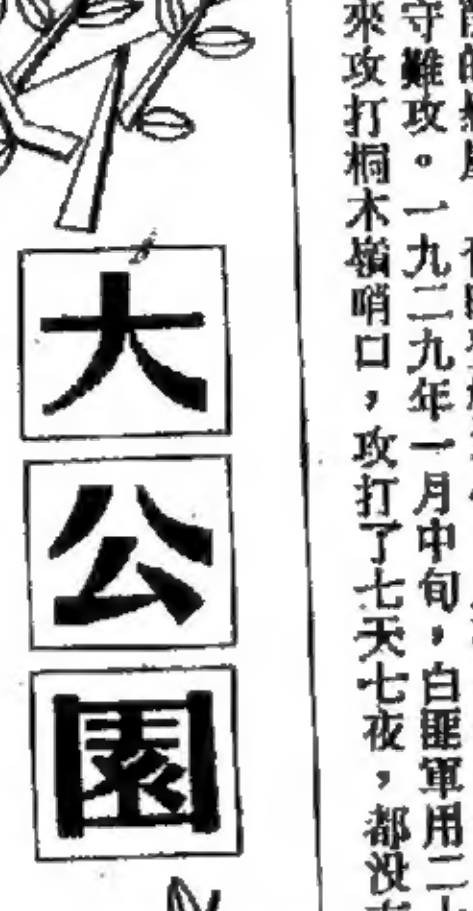 守難攻。一九二九年一月中旬，白匪軍用二
來攻打桐木嶺哨口，攻打了七天七夜，都没
大公園